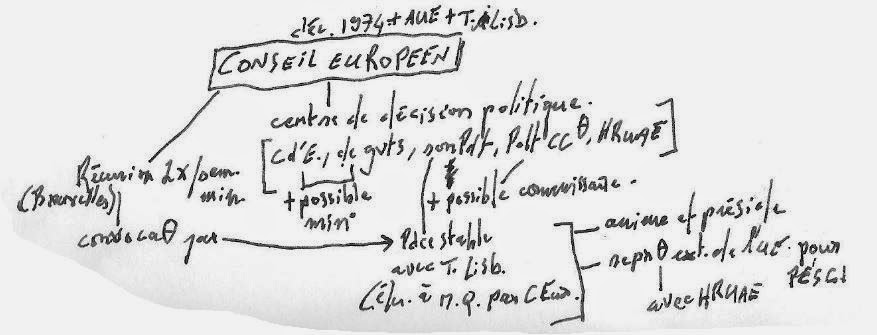 déc. 1974 + AUE + T. Lisb.
CONSEIL EUROPEEN
centre de décision politique.
[Cd'E., de gvts, son Pdt, Pdt CCθ, HRUAE]
Réunion 2x/sem. min.
(Bruxelles)
+ possible min°
+ possible commissaire.
convocaθ par → Pdce stable
avec T. Lisb.
(élu à M.Q. par CEur.
anime et préside
reprθ ext. de l'UE pour PESC
avec HRUAE